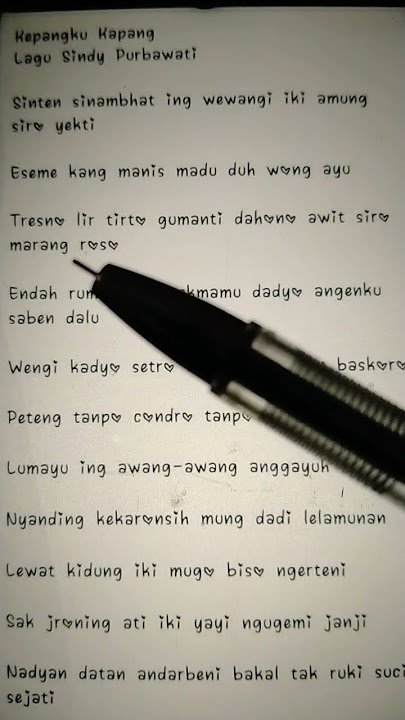 Kepangku Kapang
Lagu Sindy Purbawati
Sinten sinambhat ing wewangi iki amung
siro yekti
Eseme kang manis madu duh wong ayu
Tresno lir tirto gumanti dahono awit siro
marang roso
Endah dadyo angenku
saben dalu
Wengi kadyo setro baskoro
Peteng tanpo condro
Lumayu ing awang-awang anggayuh
Nyanding kekaronsih mung dadi lelamunan
Lewat kidung iki mugo biso ngerteni
Sak jroning ati iki yayi ngugemi janji
Nadyan datan andarbeni bakal tak ruki suci
sejati